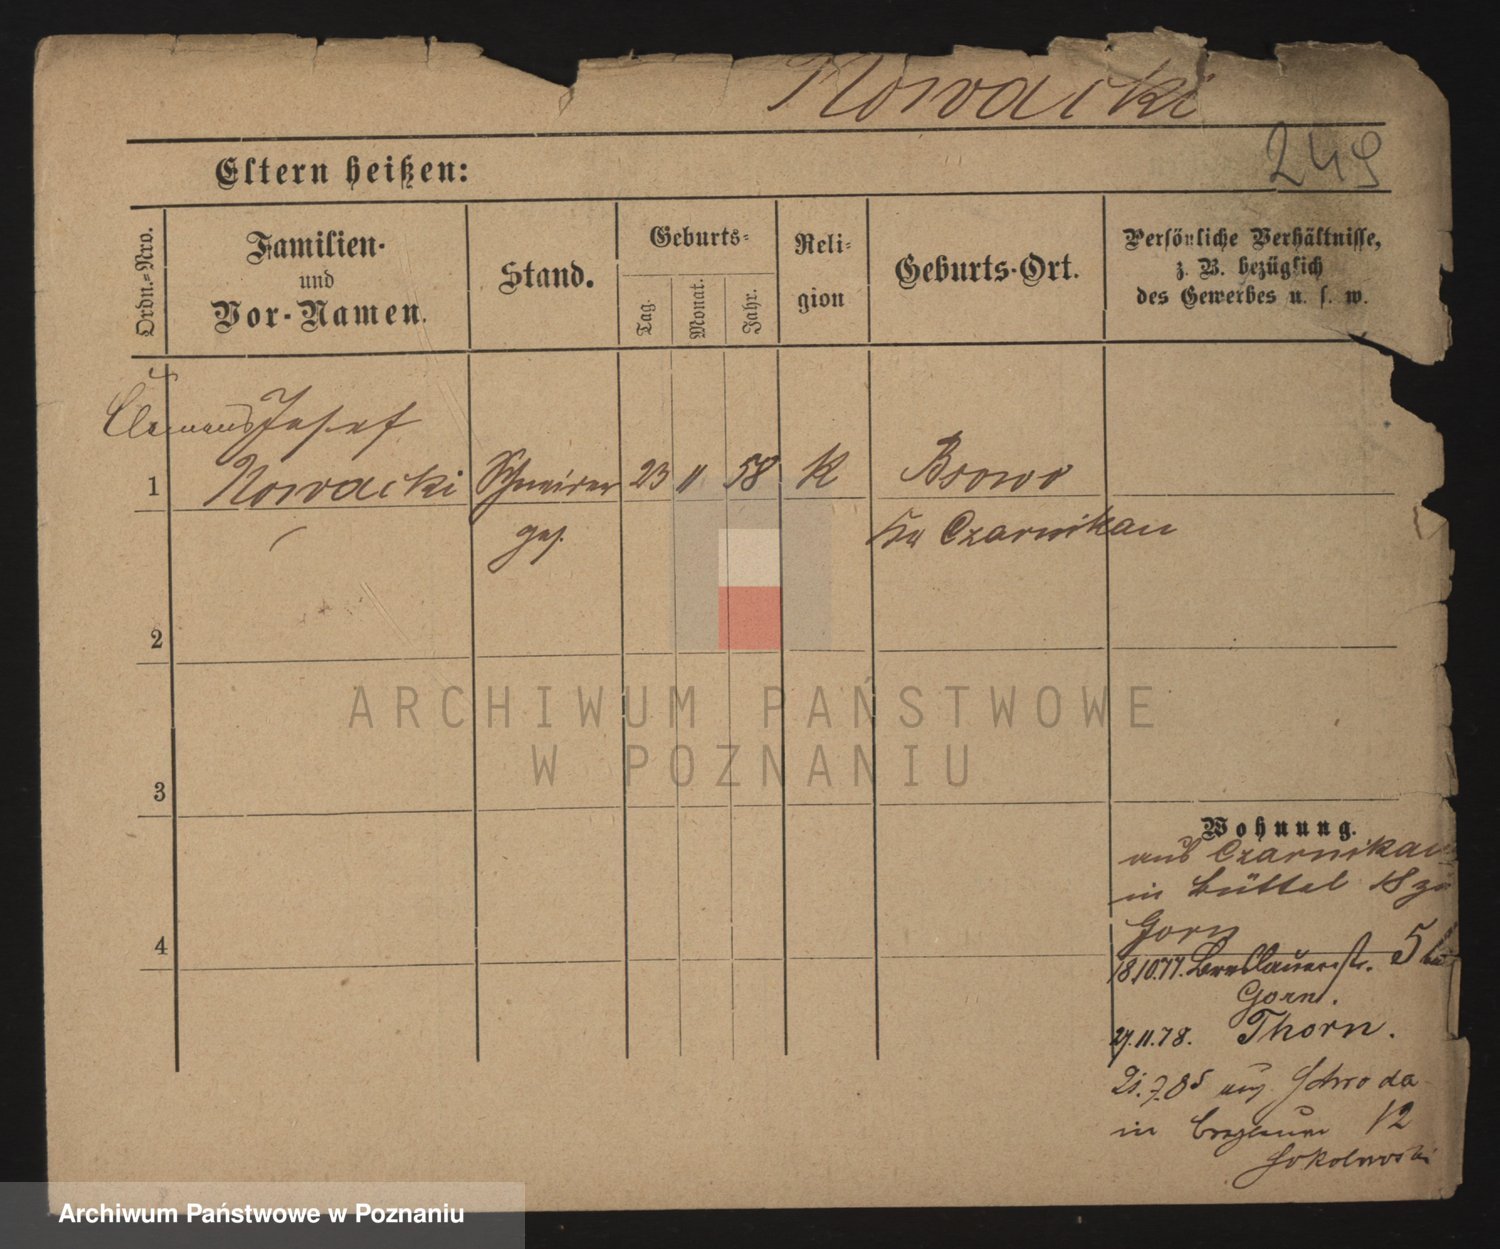 Nowacki
249
Eltern heißen:
Ordn.=Nro.
Familien-
und
Vor-Namen.
Stand.
Geburts=
Tag.
Monat.
Jahr.
Reli=
gion
Geburts-Ort.
Persönliche Verhältnisse,
z. B. bezüglich
des Gewerbes u. s. w.
Clemens Josef
1 Nowacki Schneider 23 11 58 K
ges. Kr Czarnikau
2
3
4
ARCHIWUM PAŃSTWOWE
W POZNANIU
Wohnung.
aus Czarnikau
in Büttel 18 zu
Gorn
18.10.77. Breslauerstr. 5 bei
Gorn.
27.11.78. Thorn.
21.7.85 aus Schroda
in 12
Sokolowski
Archiwum Państwowe w Poznaniu